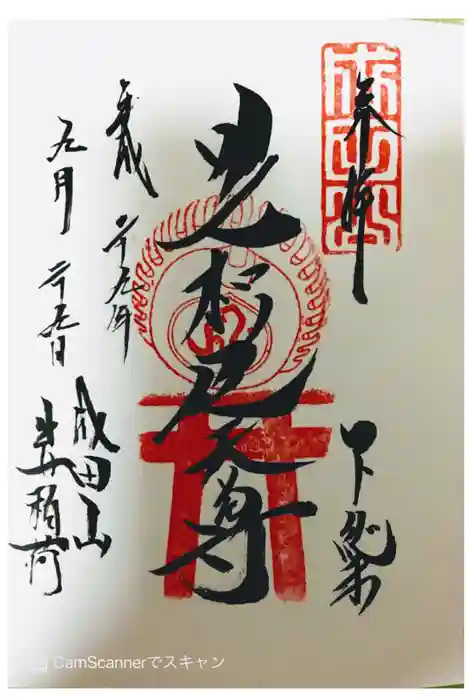 奉拝
成田山
下総
荼枳尼天尊
平成 二十九年
九月 二十九日
成田山
出世稲荷
CamScannerでスキャン